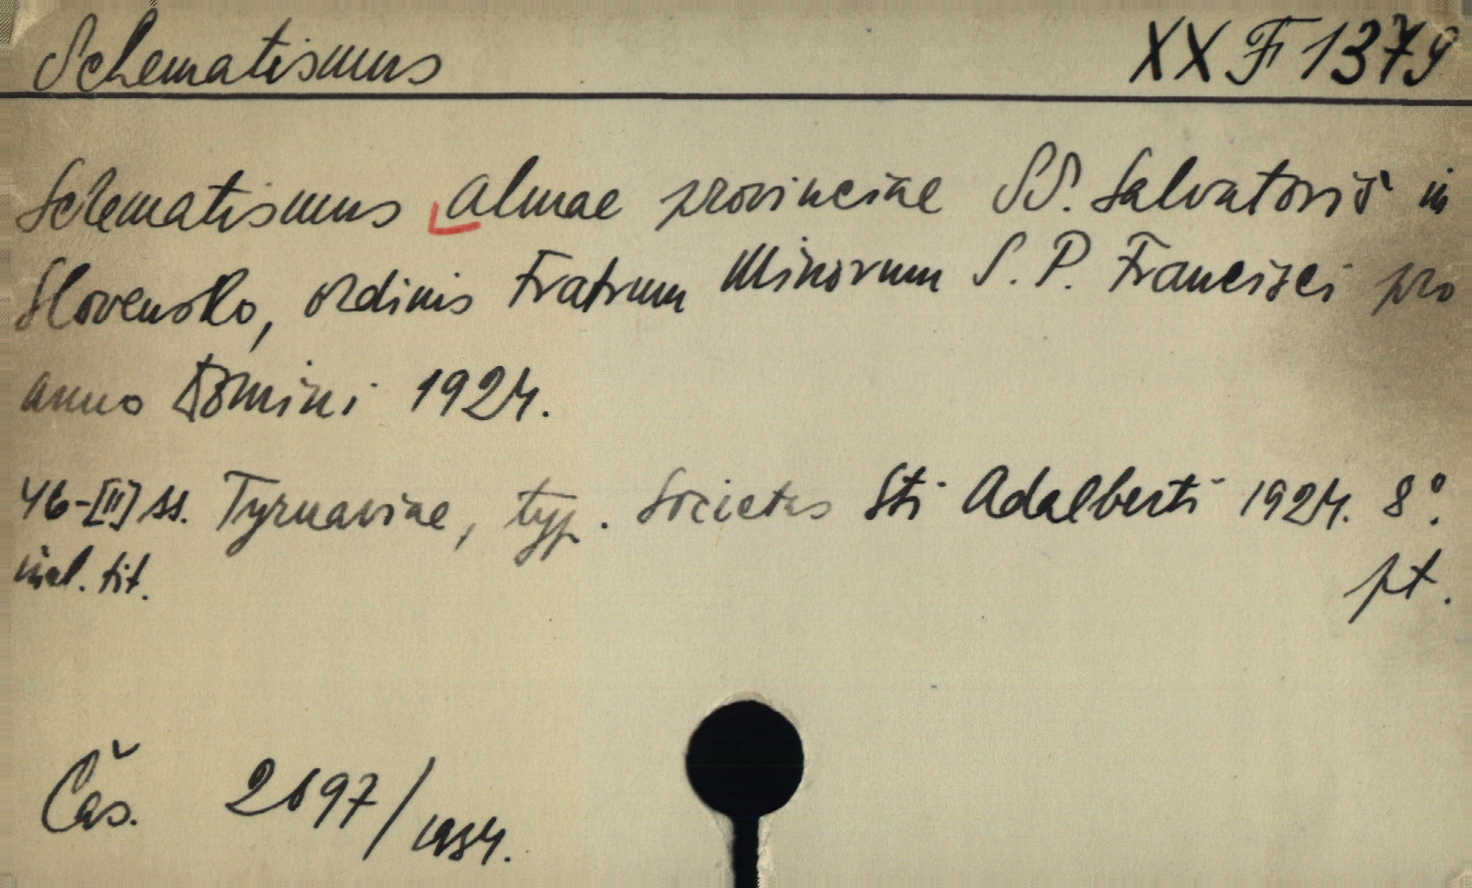 Schematismus XX F 1379
Schematismus almae provinciae SS. Salvatoris in
Slovensko, ordinis Fratrum Minorum S. P. Francisci pro
anno Domini 1924.
46-[II] ss. Tyrnaviae, typ. Societas Sti Adalberti 1924. 8°.
inal. tit. pt.
Čas. 2697/1934.